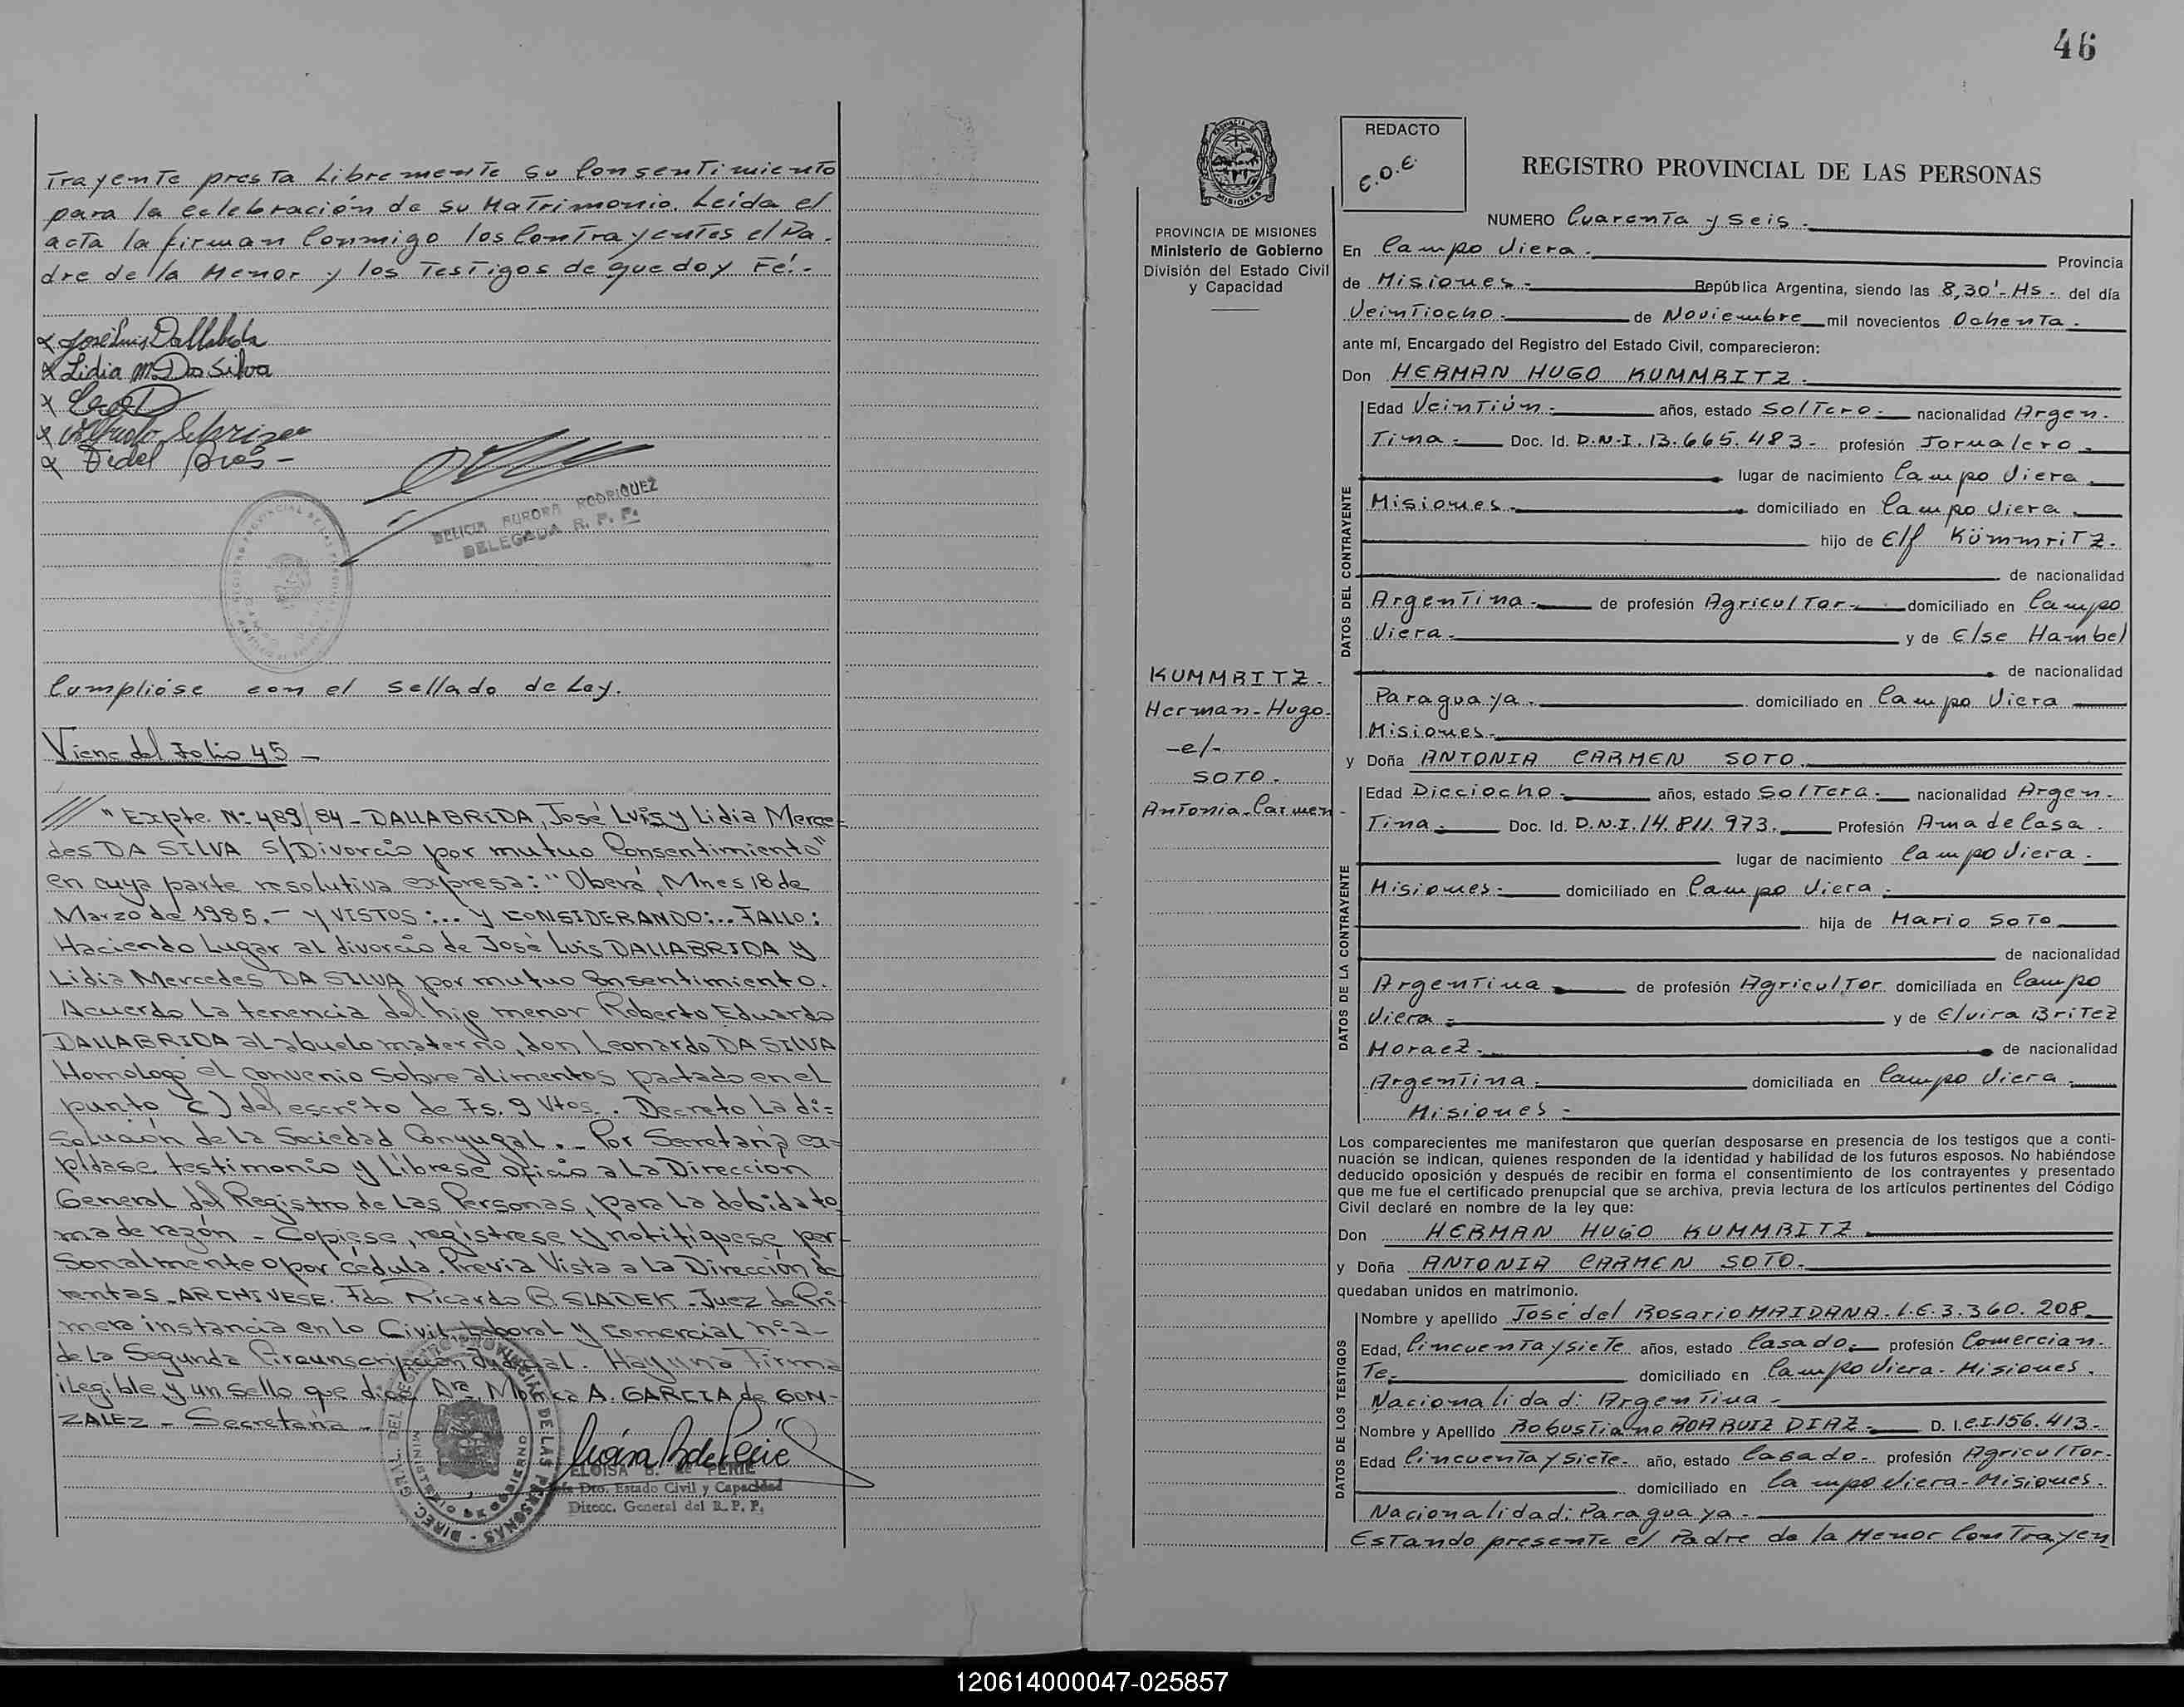 Trayente presta Libremente su Consentimiento
para la Celebración de su Matrimonio. Leída el
acta la firman Conmigo los Contrayentes el Pa-
dre de la Menor y los Testigos de que doy Fé.-
x José Luis Dallabrida
x Lidia M. Da Silva
x
x
x Fidel
DELICIA AURORA RODRIGUEZ
DELEGADA R. P. P.
Cumplióse con el Sellado de Ley.
Viene del Folio 45 -
/// "Expte. Nº 489/84 - DALLABRIDA, José Luis y Lidia Merce-
des DA SILVA S/Divorcio por mutuo Consentimiento"
en cuya parte resolutiva expresa: "Oberá, Mnes 18 de
Marzo de 1985.- Y VISTOS:.. Y CONSIDERANDO:.. FALLO:
Haciendo Lugar al divorcio de José Luis DALLABRIDA y
Lidia Mercedes DA SILVA por mutuo Consentimiento.
Acuerdo La tenencia del hijo menor Roberto Eduardo
DALLABRIDA al abuelo materno, don Leonardo DA SILVA
Homologo el convenio sobre alimentos pactado en el
punto C) del escrito de Fs. 9 Vtos.. Decreto La di-
solución de La Sociedad Conyugal.- Por Secretaría ex-
pídase testimonio y Líbrese oficio a La Dirección
General del Registro de Las Personas, para La debida to-
ma de razón - Copiese, regístrese y notifíquese per-
sonalmente o por cédula. Previa Vista a La Dirección de
rentas - ARCHIVESE. Fdo Ricardo B. SLADEK - Juez de Pri-
mera instancia en lo Civil, Laboral y Comercial Nº 2 -
de La Segunda Circunscripción Judicial. Hay una Firma
ilegible y un sello que dice Dra. Mónica A. GARCIA de GON-
ZALEZ - Secretaria -
ELOISA B. de PERIE
Jefa Dto. Estado Civil y Capacidad
Direcc. General del R. P. P.
46
PROVINCIA DE MISIONES
Ministerio de Gobierno
División del Estado Civil
y Capacidad
KUMMRITZ.
Herman-Hugo-
-e/-
SOTO.
Antonia-Carmen-
REDACTO
E.O.E.
REGISTRO PROVINCIAL DE LAS PERSONAS
NUMERO Cuarenta y Seis.-
En Campo Viera.- Provincia
de Misiones.- República Argentina, siendo las 8,30'-Hs- del día
Veintiocho.- de Noviembre mil novecientos Ochenta.-
ante mí, Encargado del Registro del Estado Civil, comparecieron:
Don HERMAN HUGO KUMMRITZ.-
DATOS DEL CONTRAYENTE
Edad Veintiún.- años, estado Soltero.- nacionalidad Argen-
Tina.- Doc. Id. D.N.I. 13.665.483- profesión Jornalero.-
lugar de nacimiento Campo Viera.-
Misiones.- domiciliado en Campo Viera.-
hijo de Elf Kümmritz.
de nacionalidad
Argentina.- de profesión Agricultor.- domiciliado en Campo
Viera.- y de Else Hambel
de nacionalidad
Paraguaya.- domiciliado en Campo Viera
Misiones.-
y Doña ANTONIA CARMEN SOTO.-
DATOS DE LA CONTRAYENTE
Edad Dieciocho.- años, estado Soltera.- nacionalidad Argen-
Tina.- Doc. Id. D.N.I. 14.811.973.- Profesión Ama de Casa.-
lugar de nacimiento Campo Viera.-
Misiones.- domiciliado en Campo Viera.-
hija de Mario Soto
de nacionalidad
Argentina de profesión Agricultor domiciliada en Campo
Viera.- y de Elvira Britez
Moraez.- de nacionalidad
Argentina.- domiciliada en Campo Viera.-
Misiones.-
Los comparecientes me manifestaron que querían desposarse en presencia de los testigos que a conti-
nuación se indican, quienes responden de la identidad y habilidad de los futuros esposos. No habiéndose
deducido oposición y después de recibir en forma el consentimiento de los contrayentes y presentado
que me fue el certificado prenupcial que se archiva, previa lectura de los artículos pertinentes del Código
Civil declaré en nombre de la ley que:
Don HERMAN HUGO KUMMRITZ
y Doña ANTONIA CARMEN SOTO.-
quedaban unidos en matrimonio.
DATOS DE LOS TESTIGOS
Nombre y apellido José del Rosario MAIDANA. L.E. 3.360.208
Edad, Cincuenta y Siete años, estado Casado.- profesión Comercian-
Te.- domiciliado en Campo Viera - Misiones.
Nacionalidad: Argentina.-
Nombre y Apellido Robustiano ROA RUIZ DIAZ.- D. I. C.I. 156.413-
Edad Cincuenta y Siete- año, estado Casado- profesión Agricultor-
domiciliado en Campo Viera - Misiones.-
Nacionalidad: Paraguaya.-
Estando presente el Padre de la Menor Contrayen
120614000047-025857